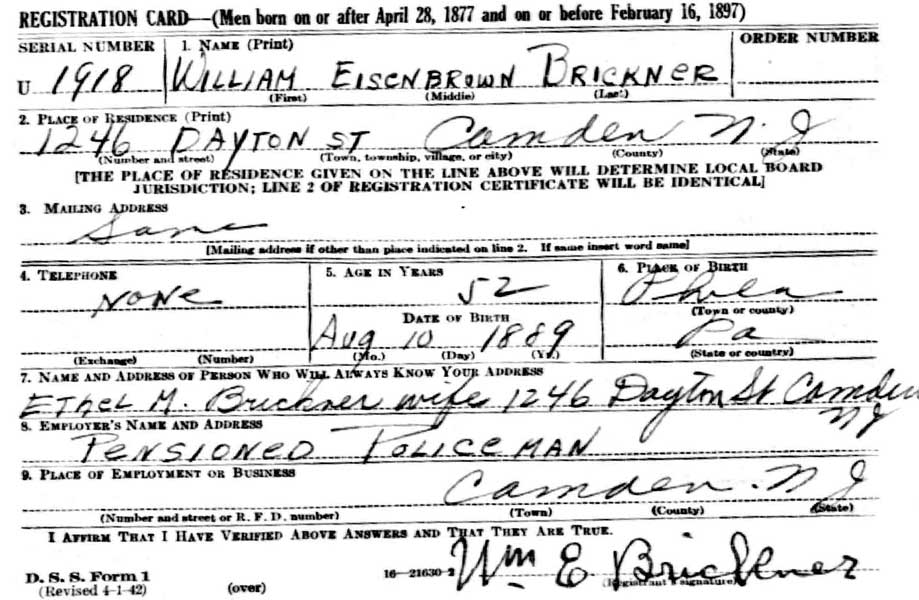 REGISTRATION CARD—(Men born on or after April 28, 1877 and on or before February 16, 1897)
SERIAL NUMBER 1. NAME (Print) ORDER NUMBER
U 1918 WILLIAM EISENBROWN BRICKNER
(First) (Middle) (Last)
2. PLACE OF RESIDENCE (Print)
1246 DAYTON ST Camden N. J
(Number and street) (Town, township, village, or city) (County) (State)
[THE PLACE OF RESIDENCE GIVEN ON THE LINE ABOVE WILL DETERMINE LOCAL BOARD
JURISDICTION; LINE 2 OF REGISTRATION CERTIFICATE WILL BE IDENTICAL]
3. MAILING ADDRESS
Same
[Mailing address if other than place indicated on line 2. If same insert word same]
4. TELEPHONE 5. AGE IN YEARS 6. PLACE OF BIRTH
NONE 52 Phila
(Town or county)
DATE OF BIRTH
Aug 10 1889 Pa
(Exchange) (Number) (Mo.) (Day) (Yr.) (State or country)
7. NAME AND ADDRESS OF PERSON WHO WILL ALWAYS KNOW YOUR ADDRESS
ETHEL M. Brickner wife 1246 Dayton St Camden
NJ
8. EMPLOYER'S NAME AND ADDRESS
PENSIONED POLICEMAN
9. PLACE OF EMPLOYMENT OR BUSINESS
Camden. N J
(Number and street or R. F. D. number) (Town) (County) (State)
I AFFIRM THAT I HAVE VERIFIED ABOVE ANSWERS AND THAT THEY ARE TRUE.
Wm E Brickner
D. S. S. Form 1 16—21630-2 (Registrant's signature)
(Revised 4-1-42) (over)